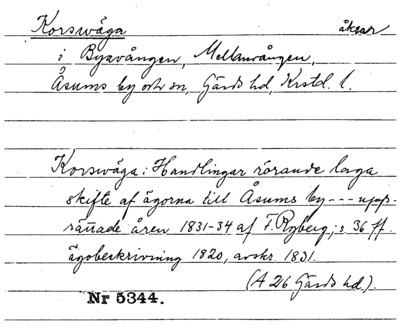 Korsväga åkrar
i Byavången, Mellanvången,
Åsums by och sn, Gärds hd, Krstd. l.
Korsväga: Handlingar rörande laga
skifte af ägorna till Åsums by --- upp-
rättade åren 1831-34 af F. Ryberg, s. 36 ff.
ägobeskrivning 1820, avskr. 1831.
(A 26 Gärds hd).
Nr 5344.